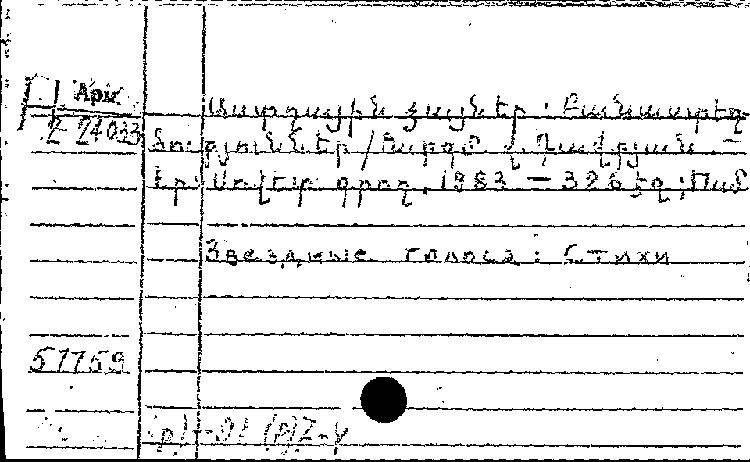 Арм
2-24033
Աստղային ձայներ : Բանաստեղ-
ծություններ / Թարգմ. Վ. Դավթյան. —
Եր. Սովետ. գրող, 1983 — 326 էջ ;
Звездные голоса : Стихи
51759